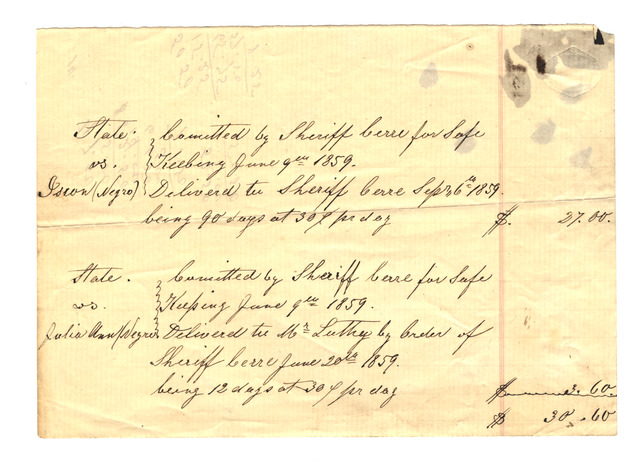 State. Comitted by Sheriff Cerre for Safe
vs. Keebing June 9th 1859.
(Negro) Deliverd to Sheriff Cerre Sepr 6th 1859.
being 90 days at 30¢ pr day $. 27.00.
State. Comitted by Sheriff Cerre for Safe
vs. Keeping June 9th 1859.
Julia Ann (Negro) Deliverd to Mr Luthy by Order of
Sheriff Cerre June 20th 1859.
being 12 days at 30¢ pr day $ 3.60.
$ 30.60